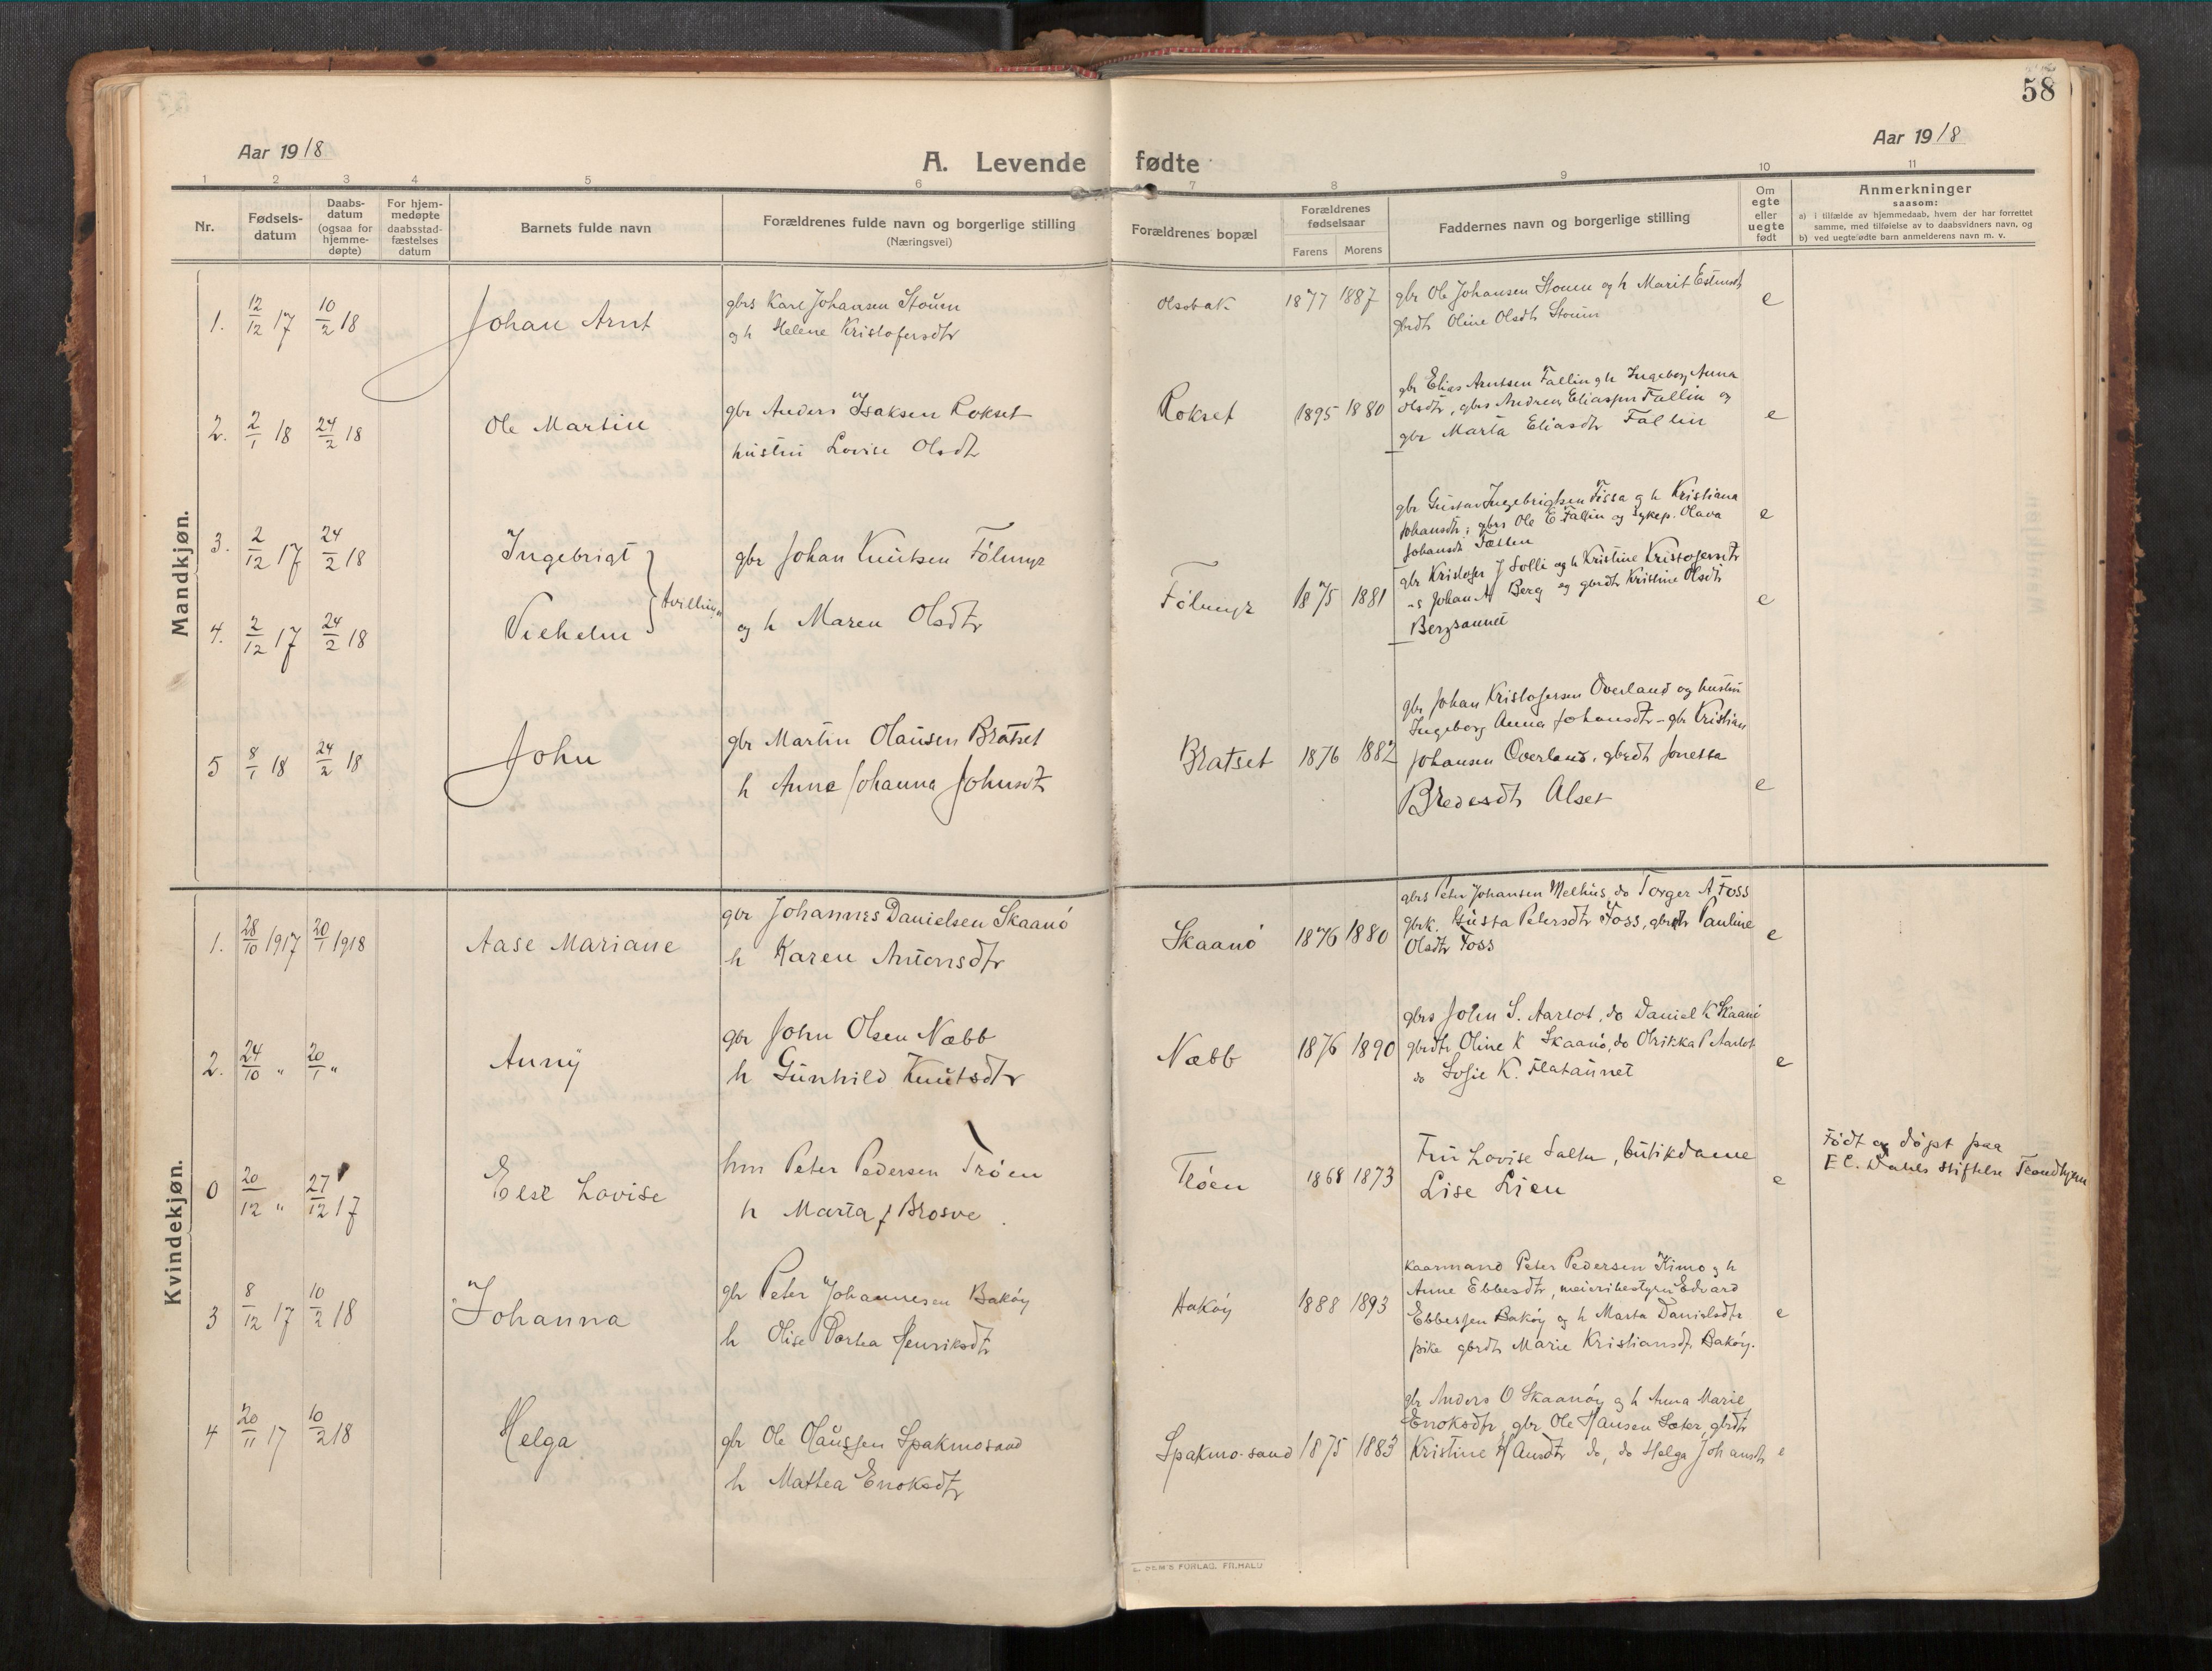 58
Aar 1918
Aar 1918
A. Levende fødte
1 2 3 4 5 6 7 8 9 10 11
Nr.
Fødsels-
datum
Daabs-
datum
(ogsaa for
hjemme-
døpte)
For hjem-
medøpte
daabsstad-
fæstelses
datum
Barnets fulde navn
Forældrenes fulde navn og borgerlige stilling
(Næringsvei)
Forældrenes bopæl
Forældrenes
fødselsaar
Farens Morens
Faddernes navn og borgerlige stilling
Om
egte
eller
uegte
født
Anmerkninger
saasom:
a) i tilfælde av hjemmedaab, hvem der har forrettet
samme, med tilføielse av to daabsvidners navn, og
b) ved uegtefødte barn anmelderens navn m. v.
Mandkjøn.
1. 12/12 17 10/2 18 Johan Arnt
gbrs Karl Johansen Stouin
og h Helene Kristofersdtr
Olsobak 1877 1887
gbr Ole Johansen Stouin og h Marit Estensdt
gbrdtr Oline Olsdtr Stouin
e
2. 2/1 18 24/2 18 Ole Martin
gbr Anders Isaksen Rokset
hustru Lovise Olsdtr
Rokset 1895 1880
gbr Elias Arntsen Fallin og h Ingeborg Anna
Olsdtr, gbrs Andreas Eliassen Fallin og
gbr Marta Eliasdtr Fallin
e
3. 2/12 17 24/2 18 Ingebrigt
4. 2/12 17 24/2 18 Vilhelm
tvillinger
gbr Johan Knutsen Følmyr
og h Maren Olsdtr
Følmyr 1875 1881
gbr Gustav Ingebrigtsen Tissa og h Kristiana
Johansdtr; gbrs Ole E Fallin og sykep. Olava
Johansdt
e
gbr Kristofer J Solli og h Kristine Kristofersdtr
-s Johan A Berg og gbrdtr Kristine Olsdtr
Bergsaunet
e
5 8/1 18 24/2 18 John
gbr Martin Olausen Bratset
h Anne Johanna Johnsdtr
Bratset 1876 1882
gbr Johan Kristofersen Overland og hustru
Ingeborg Anna Johansdtr - gbr Kristian
Johansen Overland, gbrdtr Jonetta
Bredesdtr Alset
e
Kvindekjøn.
1. 28/10 1917 20/1 1918 Aase Mariane
gbr Johannes Danielsen Skaanö
h Karen Antonsdtr
Skaanö 1876 1880
gbrs Peter Johansen Melhus, do Torger A Foss
gbrk. Gusta Petersdtr Foss, gbrdtr Pauline
Olsdtr Foss
e
2. 24/10 " 20/1 " Anny
gbr John Olsen Næbb
h Gunhild Knutsdtr
Næbb 1876 1890
gbrs John S. Aarlot, do Daniel K Skaanö
gbrdtr Oline K Skaanö, do Olrikka P Aarlot
do Sofie K. Flataunet
e
0 20/12 " 27/12 17 Else Lovise
hm Peter Pedersen Trøen
h Marta J Brosve
Trøen 1868 1873
Fru Lovise Salte, butikdame
Lise Lien
e
Født og døpt paa
E C. Dahls stiftelse Trondhjem
3 8/12 17 10/2 18 Johanna
gbr Peter Johannesen Bakøy
h Olise Dortea Henriksdtr
Hakøy 1888 1893
kaarmand Peter Pedersen Kimo og h
Anne Ebbesdtr, meieribestyrer Edvard
Ebbesen Bakøy og h Marta Danielsdtr
pike gbrdtr Marie Kristiansdtr Bakøy.
e
4 20/11 17 10/2 18 Helga
gbr Ole Olaussen Spakmosand
h Mathea Enoksdtr
Spakmo-sand 1875 1883
gbr Anders O Skaanøy og h Anna Marie
Enoksdtr, gbr Ole Hansen Sæter, gbrdtr
Kristine Hansdtr do, do Helga Johansdtr
e
FORLAG, FILHALD